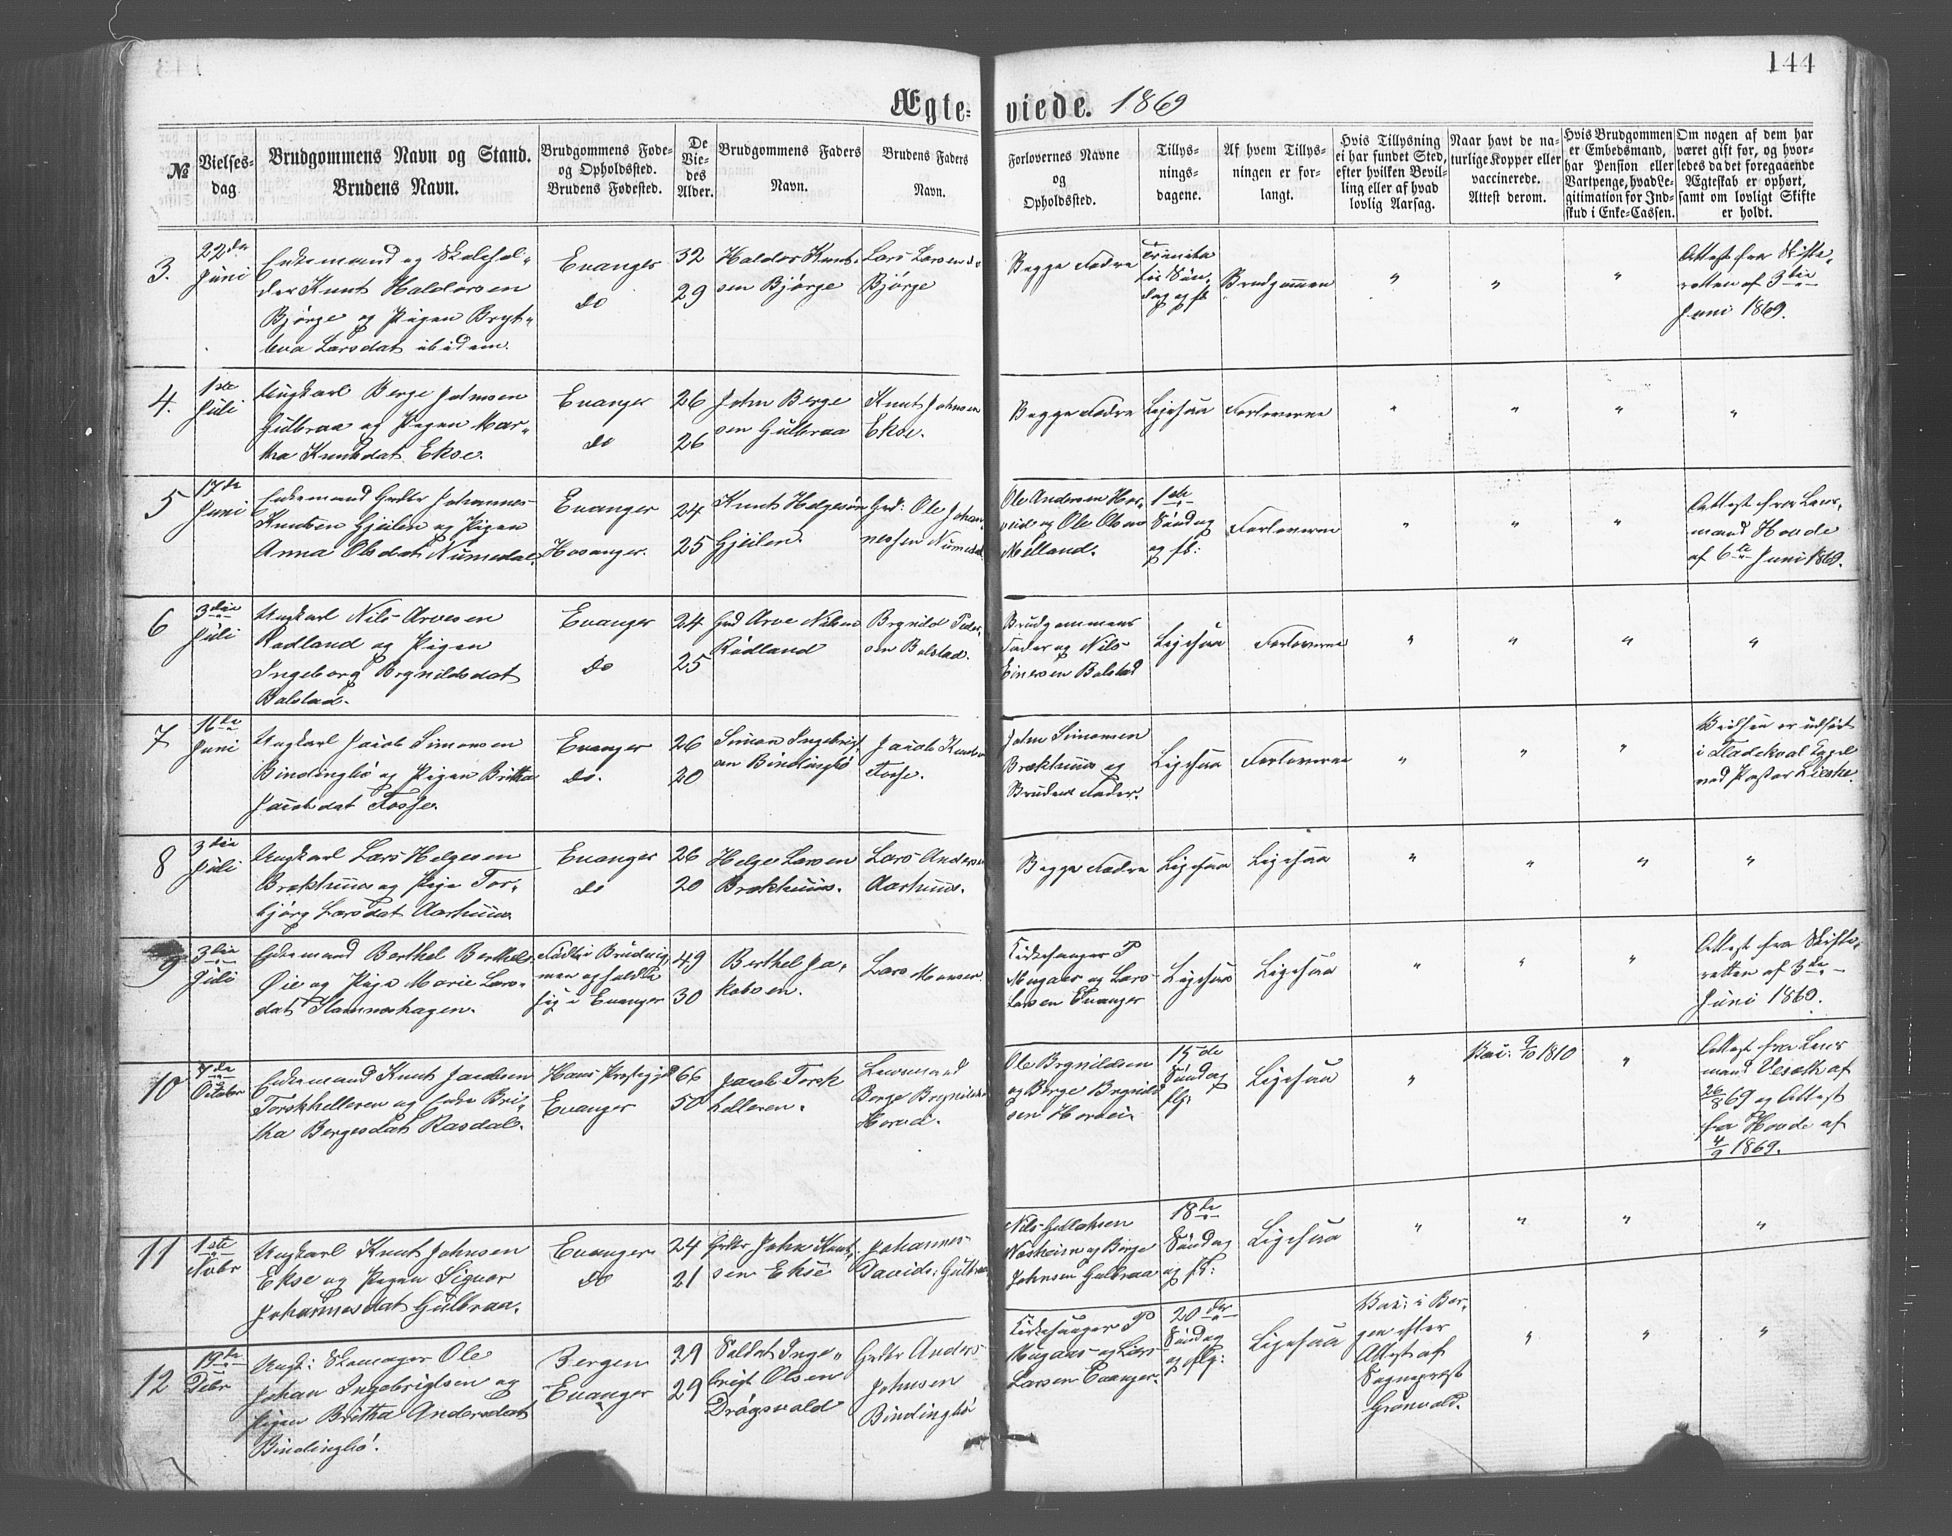 144
Ægteviede. 1869
№
Vielses-
dag
Brudgommens Navn og Stand.
Brudens Navn.
Brudgommens Føde-
og Opholdssted.
Brudens Fødested.
De
Vie-
des
Alder.
Brudgommens Faders
Navn.
Brudens Faders
Navn.
Forlovernes Navne
og
Opholdssted.
Tillys-
nings-
dagene.
Af hvem Tillys-
ningen er for-
langt.
Hvis Tillysning
ei har fundet Sted,
efter hvilken Bevil-
ling eller af hvad
lovlig Aarsag.
Naar havt de na-
turlige Kopper eller
vaccinerede.
Attest derom.
Hvis Brudgommen
er Embedsmand,
har Pension eller
Vartpenge, hvad Le-
gitimation for Ind-
skud i Enke-Cassen.
Om nogen af dem har
været gift før, og hvor-
ledes da det foregaaende
Ægteskab er ophørt,
samt om lovligt Skifte
er holdt.
3.
22de
Juni
Enkemand og Skolehol-
der Knut Haldorsen
Bjørge og Pigen Bryt-
teva Larsdat ibidem.
Evanger
do
32
29
Haldor Knut-
sen Bjørge
Lars Larsen
Bjørge
Begge Fædre
Trinita
tis Søn-
dag og fl
Brudgommen
" " "
Attest fra Skifte-
retten af 3die
Juni 1869.
4.
1ste
Juli
Ungkarl Berge Johnsen
Gulbraa og Pigen Mar-
tha Knutsdat Ekse.
Evanger
do
26
26
John Berge
sen Gulbraa
Knut Johnsen
Ekse.
Begge Fædre
Ligesaa
Forloverne
" " " "
5
17de
Juni
Enkemand Gmdbr Johannes
Knutsen Gjeilen og Pigen
Anna Olsdat Numedal.
Evanger
Hosanger.
24
25
Knut Helgesøn
Gjeilen.
Grd: Ole Johan-
nessen Numedal
Ole Andersen Hor-
veid og Ole Olsen
Mælland.
1ste
Søndag
og fl:
Forloverne
" " "
Attest fra Lens-
mand Hovde
af 6te Juni 1869.
6
3die
Juli
Ungkarl Nils Arvesen
Rødland og Pigen
Ingeborg Brynildsdat
Bolstad.
Evanger
do
24
25
Grd Arve Nilsen
Rødland
Brynild Peder-
sen Bolstad.
Brudgommens
Fader og Nils
Einersen Bolstad
Ligesaa
Forloverne
" " " "
7
16de
Juni
Ungkarl Jacob Simonsen
Bindingbø og Pigen Britha
Jacobsdat Fosse.
Evanger
do.
26
20
Simon Ingebrigt-
sen Bindingbø
Jacob Knudsen
Fosse.
John Simonsen
Brækhuus og
Brudens Fader.
Ligesaa
Forloverne
" " "
Vielsen er udført
i Fladekval Capel
ved Pastor Lieske.
8
3die
Juli
Ungkarl Lars Helgesen
Brækhuus og Pige Tor-
bjørg Larsdat Aarhuus.
Evanger
do
26
20
Helge Larsen
Brækhuus.
Lars Andersen
Aarhuus.
Begge Fædre
Ligesaa
Ligesaa
" " " "
9
3die
Juli
Enkemand Berthel Berthels.
Øie og Pige Marie Lars-
dat Hammershagen.
49
30
Berthel Ja-
kobsen.
Lars Monsen
Kirkesanger P
Mugaas og Lars
Larsen Evanger
Ligesaa
Ligesaa
" " "
Attest fra Skifte-
retten af 3de
Juni 1869.
10
7de
October
Enkemand Knut Jacobsen
Torskhelleren og Enke Bri-
tha Bergesdat Rasdal.
Hans Præstegjeld
Evanger
66
50
Jacob Torsk
helleren.
Lensmand
Berge Brynildsen
Horvei.
Ole Brynildsen
og Berge Brynild
sen Horvei.
15de
Søndag
flg:
Ligesaa
"
Vac: 9/10 1810
"
Attest fra Lens
mand Veseth af
26/8 69 og Attest
fra Hovde af
4/9 1869.
11
1ste
Novbr
Ungkarl Knut Johnsen
Ekse og Pigen Signor
Johannesdat Gulbraa.
Evanger
do
24
21
Gmdbr John Knut-
sen Ekse
Johannes
Davids: Gulbraa
Nils Gullaksen
Nesheim og Berge
Johnsen Gulbraa
18de
Søndag
og fl:
Ligesaa
" " " "
12
19de
Debr
Ungk: Skomager Ole
Johan Ingebrigtsen og
pigen Britha Andersdat
Bindingbø.
Bergen
Evanger
29
29
Soldat Inge-
brigt Olsen
Drøgsvold
Gmdbr Anders
Johnsen
Bindingbø
Kirkesanger P
Mugaas og Lars
Larsen Evanger.
20de
Søndag
og flg:
Ligesaa
Vac: i Ber-
gen efter
Attest af
Sogneprest
Grønvold.
" " "